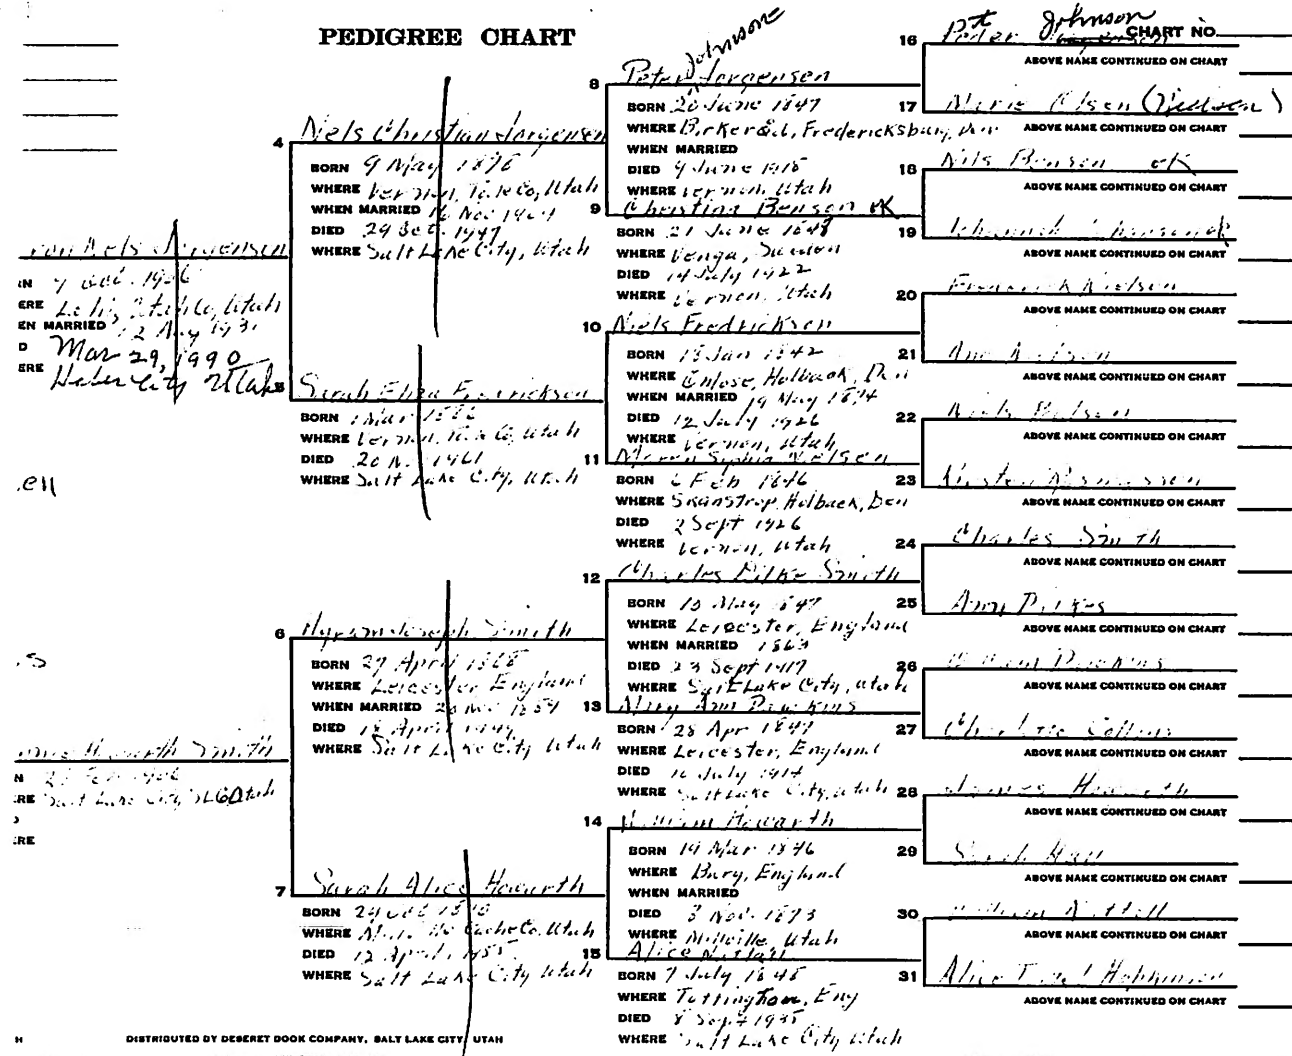 PEDIGREE CHART
CHART NO.
Nels Jorgensen
1906
Lehi, Utah Co, Utah
EN MARRIED 12 Aug 193
Mar 29, 1990
Heber City Utah
.ell
.s
Howarth Smith
Salt Lake City, SLCo Utah
4 Niels Christian Jorgensen
BORN 9 May 1876
WHERE Vernon, Tooele Co, Utah
WHEN MARRIED 16 Nov 1904
DIED 29 Oct. 1947
WHERE Salt Lake City, Utah
5 Sarah Eliza Fredricksen
BORN 1 Mar 1886
WHERE Vernon, Co, Utah
DIED 20 1961
WHERE Salt Lake City, Utah
6 Hyrum Joseph Smith
BORN 27 April 1868
WHERE Leicester, England
WHEN MARRIED
DIED 18 April
WHERE Salt Lake City Utah
7 Sarah Alice Howarth
BORN 29 Oct
WHERE Cache Co, Utah
DIED 12 April, 1955
WHERE Salt Lake City Utah
8 Peter Johnson Jorgensen
BORN 20 June 1847
WHERE Birkerød, Fredericksburg, Den
WHEN MARRIED
DIED 9 June 1915
WHERE Vernon, Utah
9 Christina Benson OK
BORN 21 June 1848
WHERE Venga, Sweden
DIED 14 July 1922
WHERE Vernon, Utah
10 Niels Fredricksen
BORN 18 Jan 1842
WHERE Holbaok, Den
WHEN MARRIED 19 May 1874
DIED 12 July 1926
WHERE Vernon, Utah
11 Maren Sophia Nielsen
BORN 6 Feb 1846
WHERE Holbaek, Den
DIED 2 Sept 1926
WHERE Vernon, Utah
12 Charles Smith
BORN 15 May 1847
WHERE Leicester, England
WHEN MARRIED 1863
DIED 23 Sept 1917
WHERE Salt Lake City, Utah
13 Mary Ann Dawkins
BORN 28 Apr 1847
WHERE Leicester, England
DIED 16 July 1914
WHERE Salt Lake City, Utah
14 William Howarth
BORN 19 Mar 1846
WHERE Bury, England
WHEN MARRIED
DIED 8 Nov. 1893
WHERE Millville, Utah
15 Alice Nuttall
BORN 7 July 1848
WHERE Tottington, Eng
DIED 8 Sept 1935
WHERE Salt Lake City Utah
16 Peter Johnson
ABOVE NAME CONTINUED ON CHART
17 Marie Olsen (Nielsen)
ABOVE NAME CONTINUED ON CHART
18 Nils Benson OK
ABOVE NAME CONTINUED ON CHART
19
ABOVE NAME CONTINUED ON CHART
20 Frederick Nielsen
ABOVE NAME CONTINUED ON CHART
21 Ane Nielsen
ABOVE NAME CONTINUED ON CHART
22 Niels Nielsen
ABOVE NAME CONTINUED ON CHART
23 Kirsten Rasmussen
ABOVE NAME CONTINUED ON CHART
24 Charles Smith
ABOVE NAME CONTINUED ON CHART
25 Ann
ABOVE NAME CONTINUED ON CHART
26 William Dawkins
ABOVE NAME CONTINUED ON CHART
27 Charlotte Collins
ABOVE NAME CONTINUED ON CHART
28 James Howarth
ABOVE NAME CONTINUED ON CHART
29 Sarah Hall
ABOVE NAME CONTINUED ON CHART
30 William Nuttall
ABOVE NAME CONTINUED ON CHART
31 Alice
ABOVE NAME CONTINUED ON CHART
DISTRIBUTED BY DESERET BOOK COMPANY, SALT LAKE CITY, UTAH